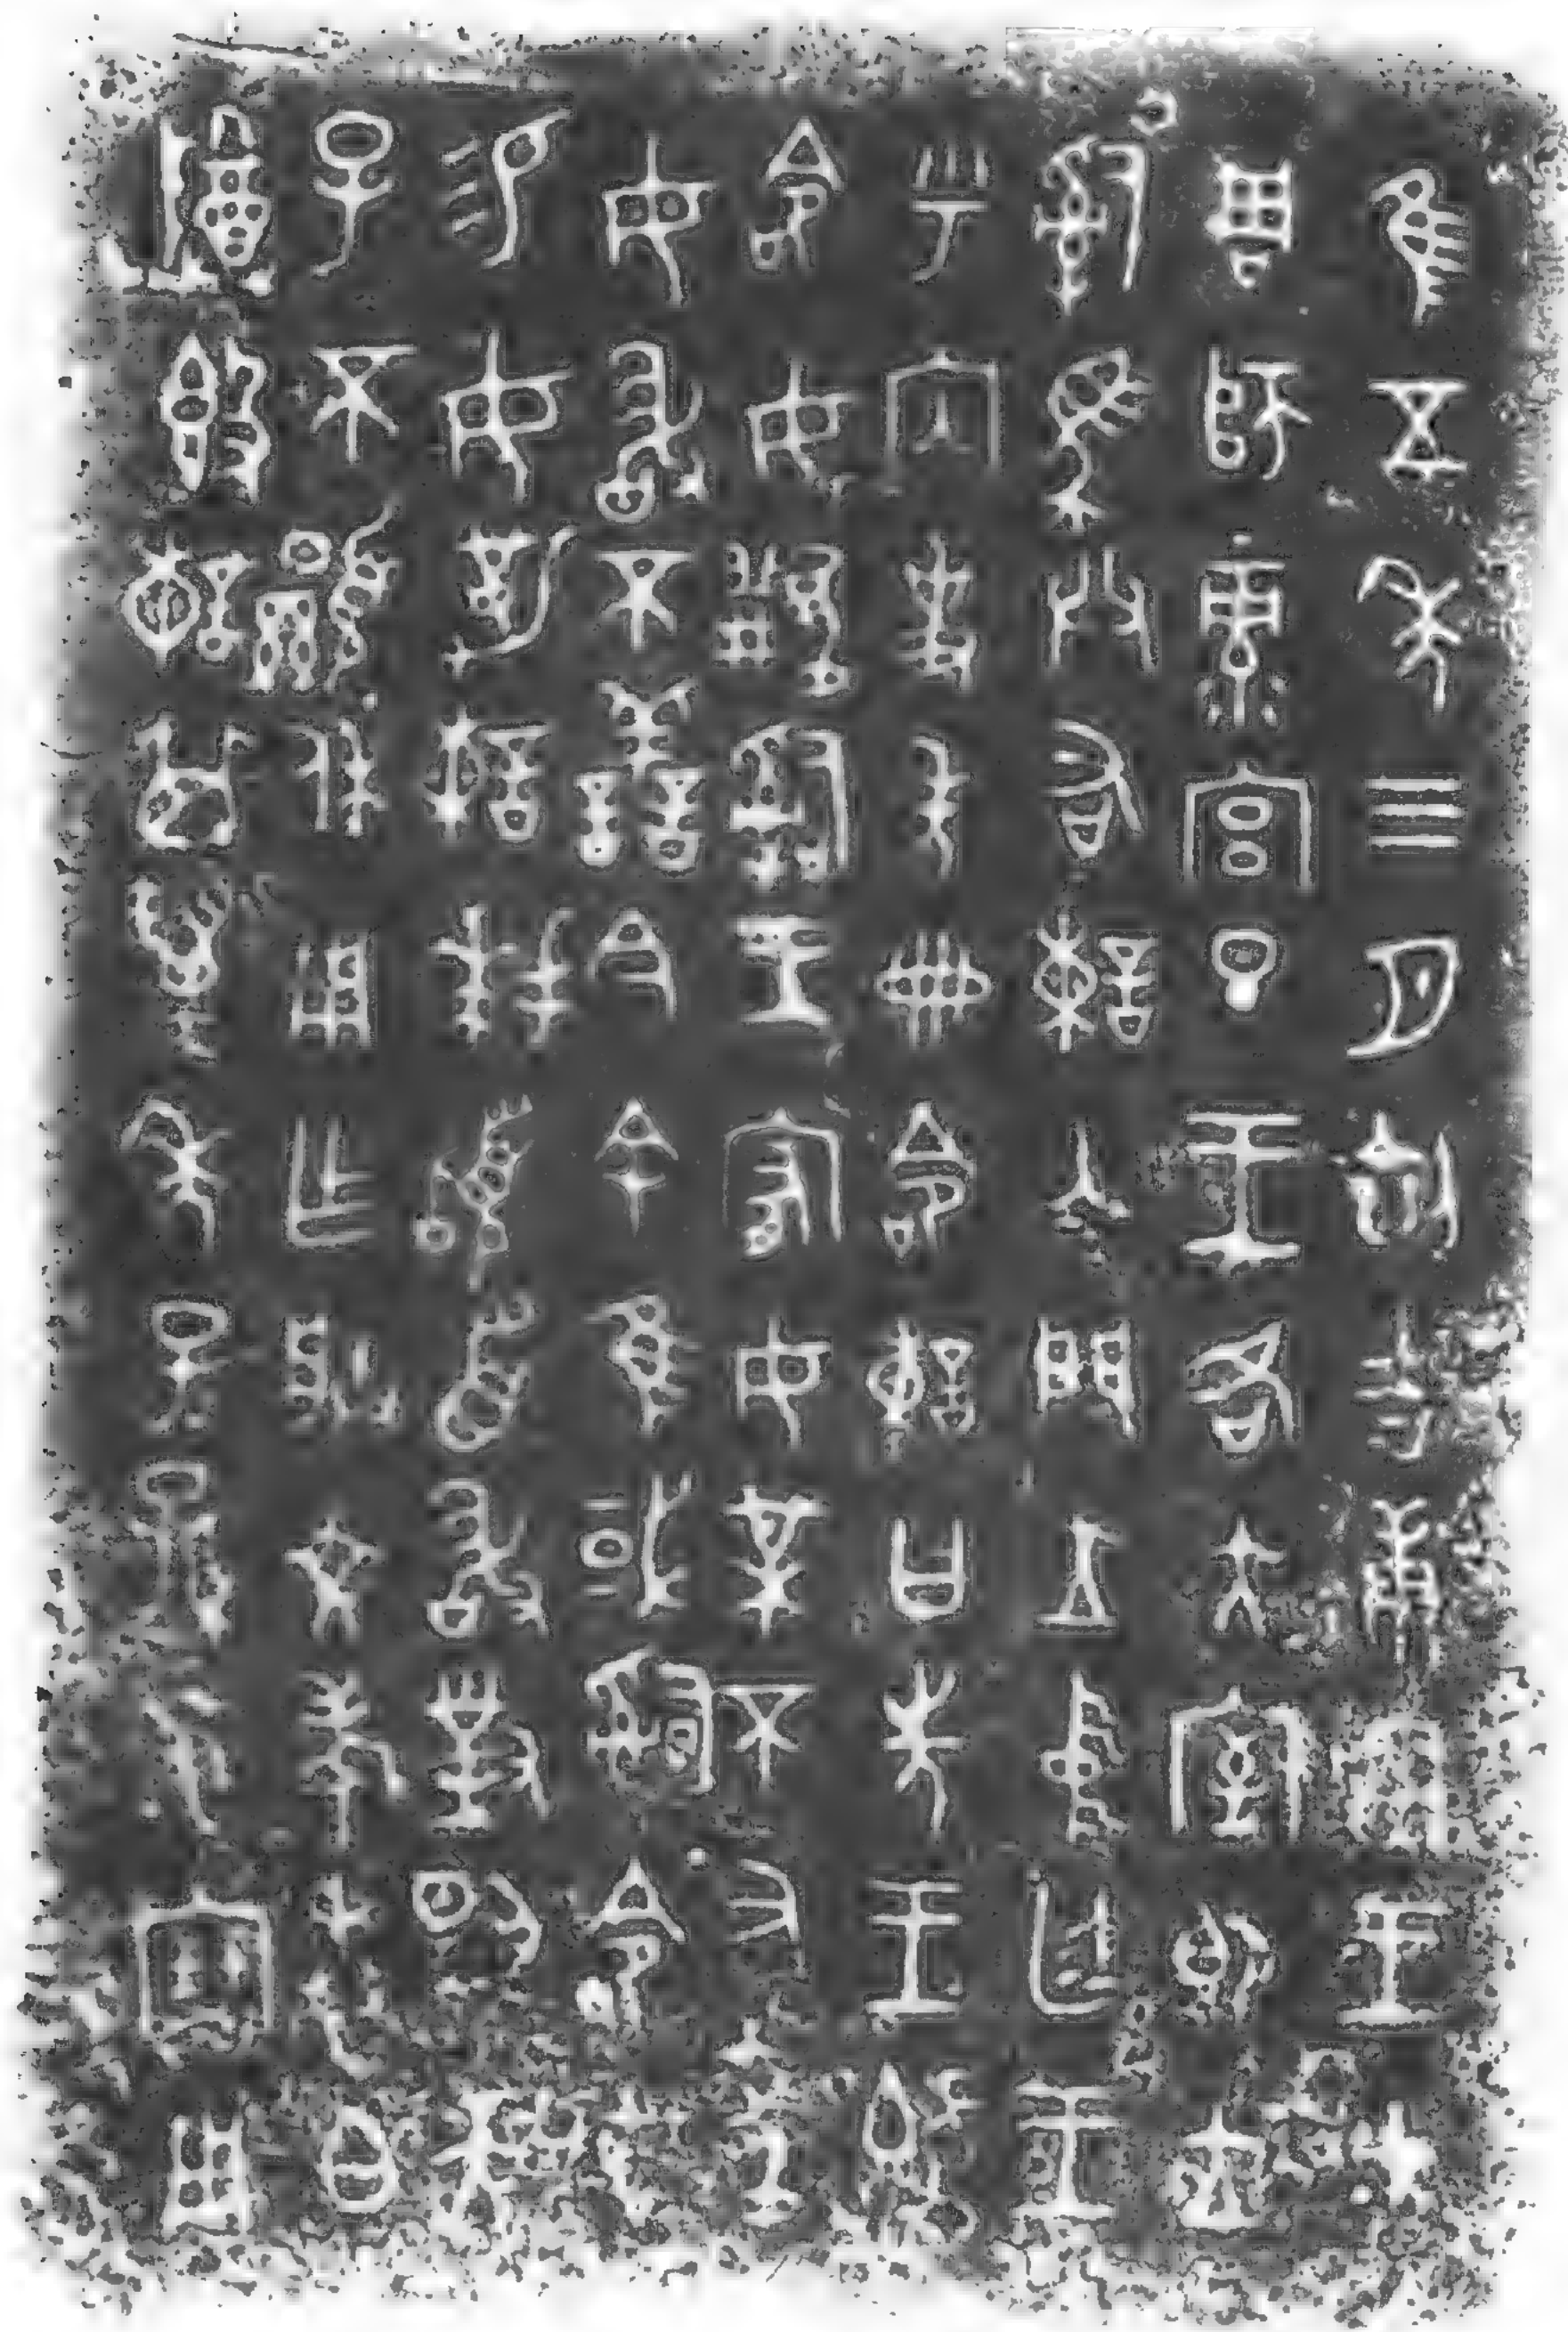 隹五年三月初吉庚寅王才
周師彔宮旦王各大室即立
𤔲馬共右諫入門立中廷王
乎内史冊令諫曰先王既
令女𤔲王宥女某不又聞
女敢不善今余隹或𤔲令女
易女攸勒諫拜䭫首敢對揚天
子不顯休用乍朕文考惠白
尊簋諫其萬年子孫永寶用